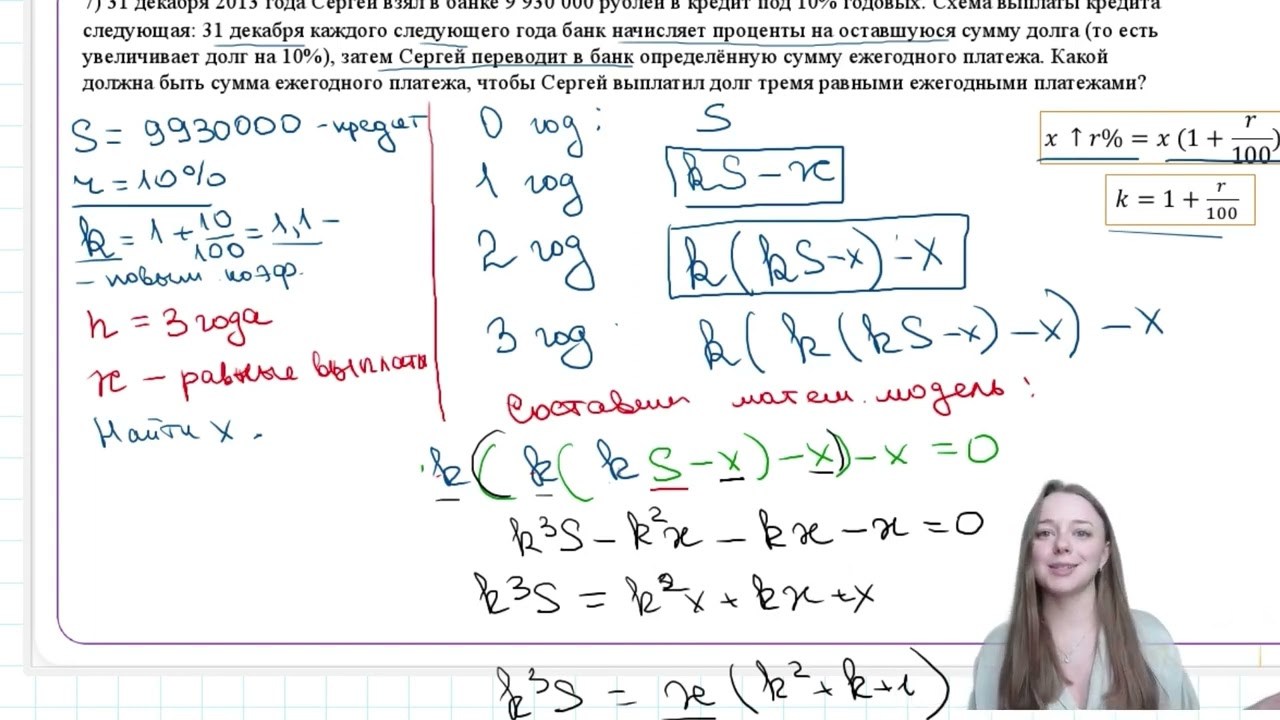 7) 31 декабря 2013 года Сергей взял в банке 9 930 000 рублей в кредит под 10% годовых. Схема выплаты кредита
следующая: 31 декабря каждого следующего года банк начисляет проценты на оставшуюся сумму долга (то есть
увеличивает долг на 10%), затем Сергей переводит в банк определённую сумму ежегодного платежа. Какой
должна быть сумма ежегодного платежа, чтобы Сергей выплатил долг тремя равными ежегодными платежами?
S = 9930000 - кредит
r = 10%
k = 1 + 10/100 = 1,1 -
- повыш. коэф.
n = 3 года
x - равные выплаты
Найти x.
0 год: S
1 год kS - x
2 год k(kS-x) - x
3 год: k(k(kS-x) - x) - x
Составим матем. модель:
k(k(kS-x)-x)-x = 0
k³S - k²x - kx - x = 0
k³S = k²x + kx + x
k³S = x(k² + k + 1)
x ↑ r% = x (1 + r/100)
k = 1 + r/100